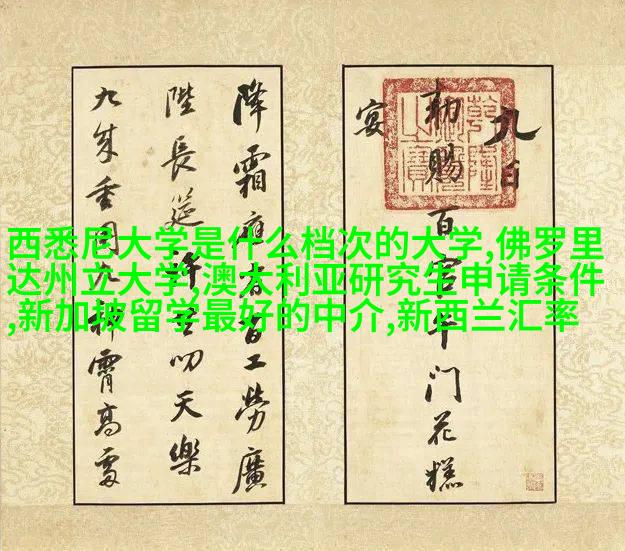 西悉尼大学是什么档次的大学,佛罗里
达州立大学,澳大利亚研究生申请条件
,新加坡留学最好的中介,新西兰汇率
九日
勅賜百官午門花糕
宴
降霜百工勞廣
陛長筵許共叨天樂
九重霄高